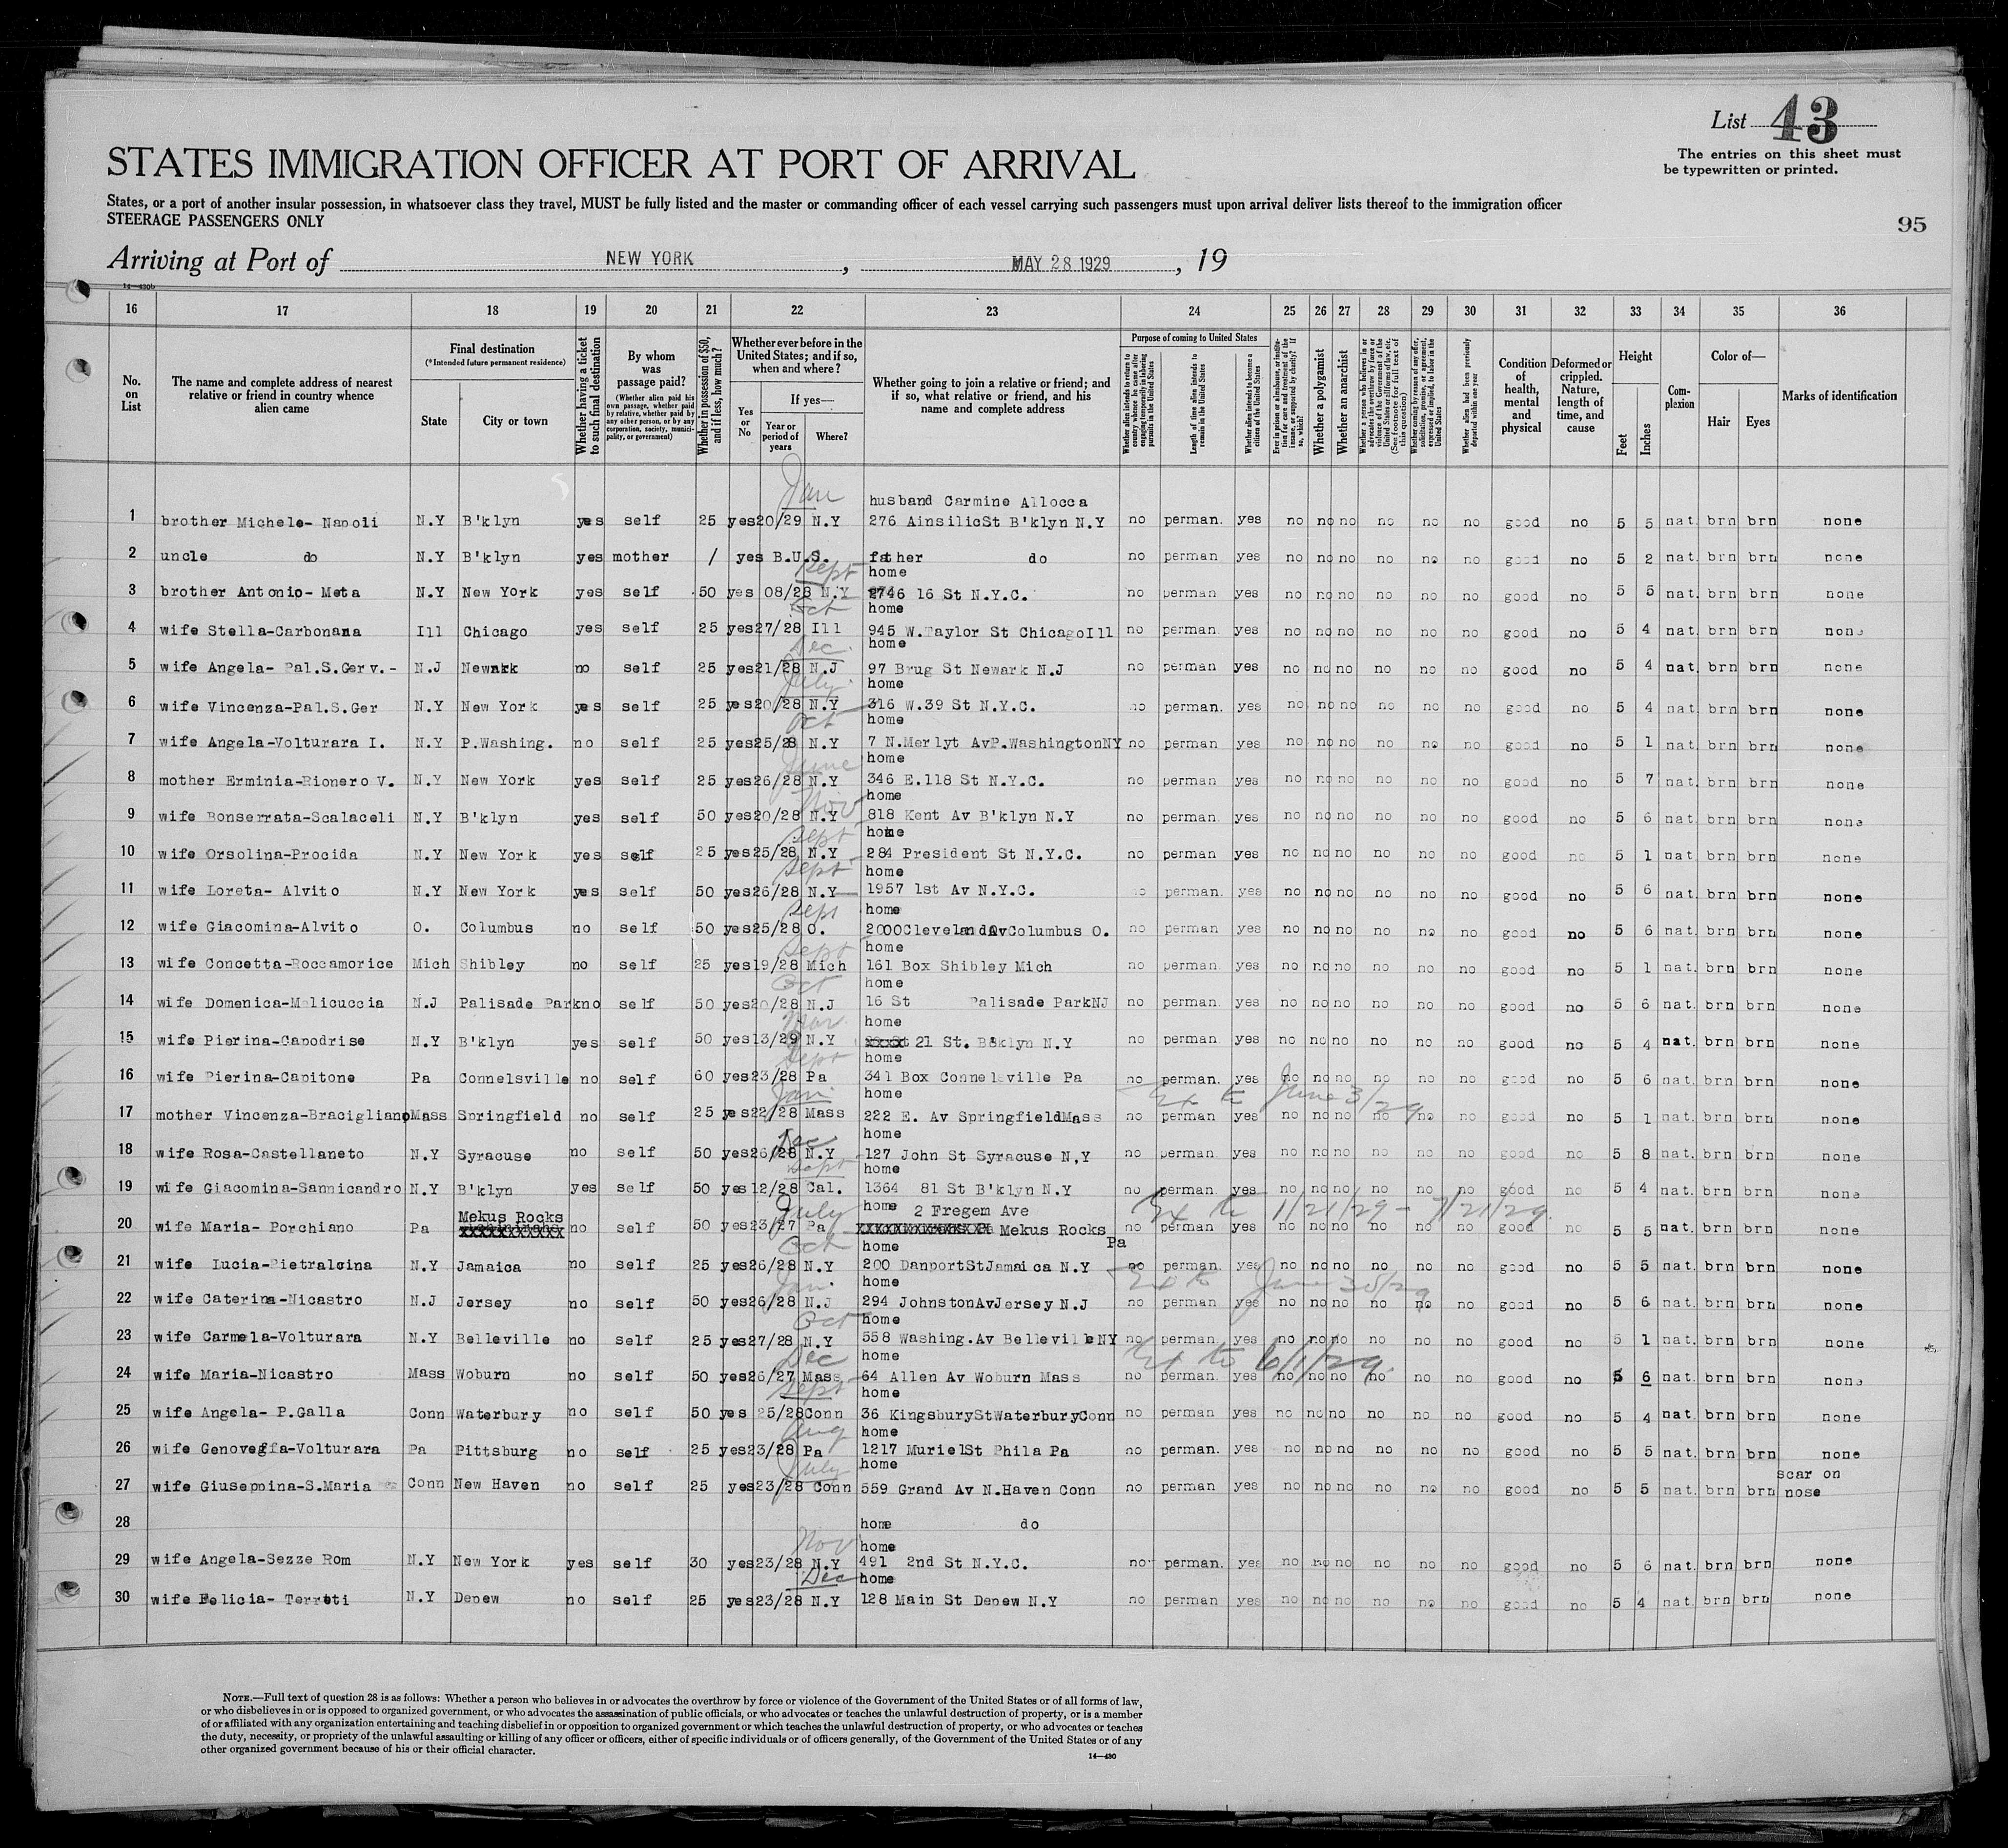 List 43
The entries on this sheet must
be typewritten or printed.
STATES IMMIGRATION OFFICER AT PORT OF ARRIVAL
States, or a port of another insular possession, in whatsoever class they travel, MUST be fully listed and the master or commanding officer of each vessel carrying such passengers must upon arrival deliver lists thereof to the immigration officer
STEERAGE PASSENGERS ONLY
95
Arriving at Port of NEW YORK , MAY 28 1929 , 19
14—430b
16 17 18 19 20 21 22 23 24 25 26 27 28 29 30 31 32 33 34 35 36
No. on List
The name and complete address of nearest relative or friend in country whence alien came
Final destination
(*Intended future permanent residence)
State
City or town
Whether having a ticket to such final destination
By whom was passage paid?
(Whether alien paid his own passage, whether paid by relative, whether paid by any other person, or by any corporation, society, municipality, or government)
Whether in possession of $50, and if less, how much?
Whether ever before in the United States; and if so, when and where?
Yes or No
If yes—
Year or period of years
Where?
Whether going to join a relative or friend; and if so, what relative or friend, and his name and complete address
Purpose of coming to United States
Whether alien intends to return to country whence he came after engaging temporarily in laboring pursuits in the United States
Length of time alien intends to remain in the United States
Whether alien intends to become a citizen of the United States
Ever in prison or almshouse, or institution for care and treatment of the insane, or supported by charity? If so, which?
Whether a polygamist
Whether an anarchist
Whether a person who believes in or advocates the overthrow by force or violence of the Government of the United States or all forms of law, etc. (See footnote for full text of this question)
Whether coming by reason of any offer, solicitation, promise, or agreement, expressed or implied, to labor in the United States
Whether alien had been previously deported within one year
Condition of health, mental and physical
Deformed or crippled. Nature, length of time, and cause
Height
Feet
Inches
Complexion
Color of—
Hair
Eyes
Marks of identification
Jan
husband Carmine Allocca
1 brother Michele- Napoli N.Y B'klyn yes self 25 yes 20/29 N.Y 276 AinsilicSt B'klyn N.Y no perman. yes no no no no no no good no 5 5 nat. brn brn none
2 uncle do N.Y B'klyn yes mother / yes B.U.S. father do no perman yes no no no no no no good no 5 2 nat. brn brn none
Sept home
3 brother Antonio- Meta N.Y New York yes self 50 yes 08/28 N.Y 16 St N.Y.C. no perman yes no no no no no no good no 5 5 nat. brn brn none
Oct home
4 wife Stella-Carbonana Ill Chicago yes self 25 yes 27/28 Ill 945 W.Taylor St ChicagoIll no perman. yes no no no no no no good no 5 4 nat. brn brn none
Dec. home
5 wife Angela- Pal.S.Gerv.- N.J Newark no self 25 yes 21/28 N.J 97 Brug St Newark N.J no perman yes no no no no no no good no 5 4 nat. brn brn none
July home
6 wife Vincenza-Pal.S.Ger N.Y New York yes self 25 yes 20/28 N.Y 316 W.39 St N.Y.C. no perman. yes no no no no no no good no 5 4 nat. brn brn none
Oct home
7 wife Angela-Volturara I. N.Y P.Washing. no self 25 yes 25/28 N.Y 7 N.Merlyt AvP.WashingtonNY no perman yes no no no no no no good no 5 1 nat. brn brn none
June home
8 mother Erminia-Rionero V. N.Y New York yes self 25 yes 26/28 N.Y 346 E.118 St N.Y.C. no perman yes no no no no no no good no 5 7 nat. brn brn none
Nov home
9 wife Bonserrata-Scalaceli N.Y B'klyn yes self 50 yes 20/28 N.Y 818 Kent Av B'klyn N.Y no perman yes no no no no no no good no 5 6 nat. brn brn none
Sept home
10 wife Orsolina-Procida N.Y New York yes self 25 yes 25/28 N.Y 284 President St N.Y.C. no perman yes no no no no no no good no 5 1 nat. brn brn none
Sept home
11 wife Loreta- Alvito N.Y New York yes self 50 yes 26/28 N.Y 1957 1st Av N.Y.C. no perman. yes no no no no no no good no 5 6 nat. brn brn none
Sept home
12 wife Giacomina-Alvito O. Columbus no self 50 yes 25/28 O. 2000ClevelandAvColumbus O. no perman yes no no no no no no good no 5 6 nat. brn brn none
Sept home
13 wife Concetta-Roccamorice Mich Shibley no self 25 yes 19/28 Mich 161 Box Shibley Mich no perman. yes no no no no no no good no 5 1 nat. brn brn none
Oct home
14 wife Domenica-Melicuccia N.J Palisade Park no self 50 yes 20/28 N.J 16 St Palisade ParkNJ no perman yes no no no no no no good no 5 6 nat. brn brn none
Mar. home
15 wife Pierina-Capodrise N.Y B'klyn yes self 50 yes 13/29 N.Y 21 St. Bklyn N.Y no perman yes no no no no no no good no 5 4 nat. brn brn none
Sept home
16 wife Pierina-Capitone Pa Connelsville no self 60 yes 23/28 Pa 341 Box Connelsville Pa no perman. yes no no no no no no good no 5 6 nat. brn brn none
Jan home Ext to June 3/29
17 mother Vincenza-Bracigliano Mass Springfield no self 25 yes 22/28 Mass 222 E. Av SpringfieldMass no perman yes no no no no no no good no 5 1 nat. brn brn none
Dec home
18 wife Rosa-Castellaneto N.Y Syracuse no self 50 yes 26/28 N.Y 127 John St Syracuse N,Y no perman. yes no no no no no no good no 5 8 nat. brn brn none
Sept home
19 wife Giacomina-Sannicandro N.Y B'klyn yes self 50 yes 12/28 Cal. 1364 81 St B'klyn N.Y no perman. yes no no no no no no good no 5 4 nat. brn brn none
Mekus Rocks July home 2 Fregem Ave Ext to 1/21/29 - 7/21/29.
20 wife Maria- Porchiano Pa xxxxxxxxxxx no self 50 yes 23/27 Pa Mekus Rocks Pa no perman yes no no no no no no good no 5 5 nat. brn brn none
Oct home
21 wife Lucia-Pietralcina N.Y Jamaica no self 25 yes 26/28 N.Y 200 DanportStJamaica N.Y no perman. yes no no no no no no good no 5 5 nat. brn brn none
Jan. home Ext to June 30/29
22 wife Caterina-Nicastro N.J Jersey no self 50 yes 26/28 N.J 294 JohnstonAvJersey N.J no perman yes no no no no no no good no 5 6 nat. brn brn none
Oct home
23 wife Carmela-Volturara N.Y Belleville no self 25 yes 27/28 N.Y 558 Washing.Av BellevilleNY no perman. yes no no no no no no good no 5 1 nat. brn brn none
Dec home Ext to 6/1/29.
24 wife Maria-Nicastro Mass Woburn no self 50 yes 26/27 Mass 64 Allen Av Woburn Mass no perman. yes no no no no no no good no 5 6 nat. brn brn none
Sept home
25 wife Angela- P.Galla Conn Waterbury no self 50 yes 25/28 Conn 36 KingsburyStWaterburyConn no perman yes no no no no no no good no 5 4 nat. brn brn none
Aug home
26 wife Genoveffa-Volturara Pa Pittsburg no self 25 yes 23/28 Pa 1217 MurielSt Phila Pa no perman. yes no no no no no no good no 5 5 nat. brn brn none
July home scar on
27 wife Giuseppina-S.Maria Conn New Haven no self 25 yes 23/28 Conn 559 Grand Av N.Haven Conn no perman yes no no no no no no good no 5 5 nat. brn brn nose
28 home do
Nov home
29 wife Angela-Sezze Rom N.Y New York yes self 30 yes 23/28 N.Y 491 2nd St N.Y.C. no perman. yes no no no no no no good no 5 6 nat. brn brn none
Dec home
30 wife Felicia- Terreti N.Y Depew no self 25 yes 23/28 N.Y 128 Main St Depew N.Y no perman yes no no no no no no good no 5 4 nat. brn brn none
NOTE.—Full text of question 28 is as follows: Whether a person who believes in or advocates the overthrow by force or violence of the Government of the United States or of all forms of law,
or who disbelieves in or is opposed to organized government, or who advocates the assassination of public officials, or who advocates or teaches the unlawful destruction of property, or is a member
of or affiliated with any organization entertaining and teaching disbelief in or opposition to organized government or which teaches the unlawful destruction of property, or who advocates or teaches
the duty, necessity, or propriety of the unlawful assaulting or killing of any officer or officers, either of specific individuals or of officers generally, of the Government of the United States or of any
other organized government because of his or their official character.
14—430